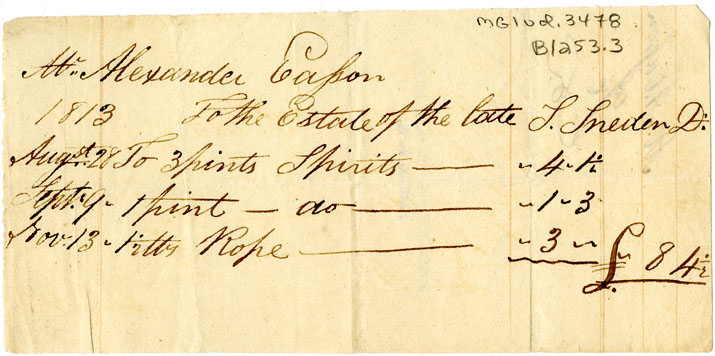 MG1 vol. 3478
B1253.3
Mr. Alexander Easson
1813 To the Estate of the late S. Sneden Dr.
Augst. 28 To 3 pints Spirits — " 4 " 1½
Sept. 9 " 1 pint — do — " 1 " 3
Nov. 13 " lbs Rope — " 3 " "
£ " 8 4½